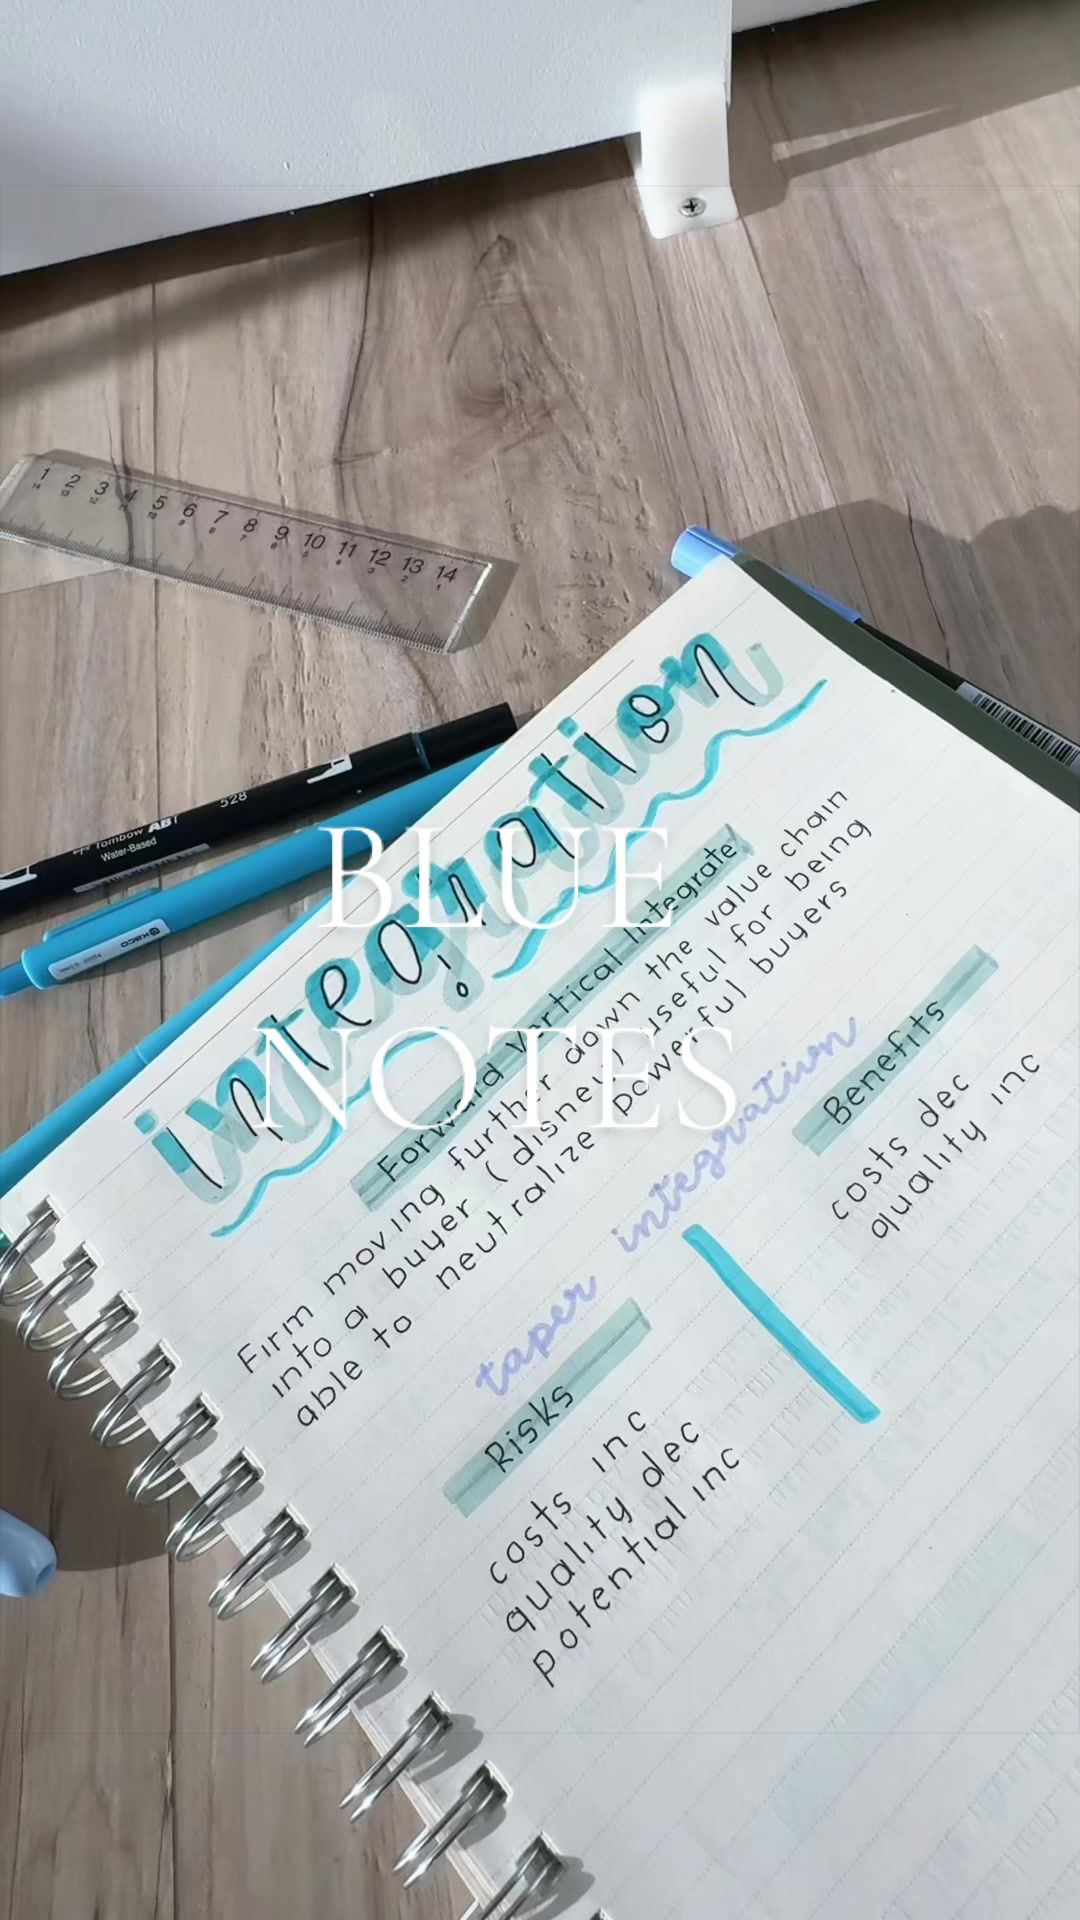 1 2 3 4 5 6 7 8 9 10 11 12 13 14
528
Tombow ABT
Water-Based
KACO
integration
BLUE
NOTES
Forward Vertical Integrate
Firm moving further down the value chain
into a buyer (disney) useful for being
able to neutralize powerful buyers
taper integration
Risks
costs inc
quality dec
potential inc
Benefits
costs dec
quality inc